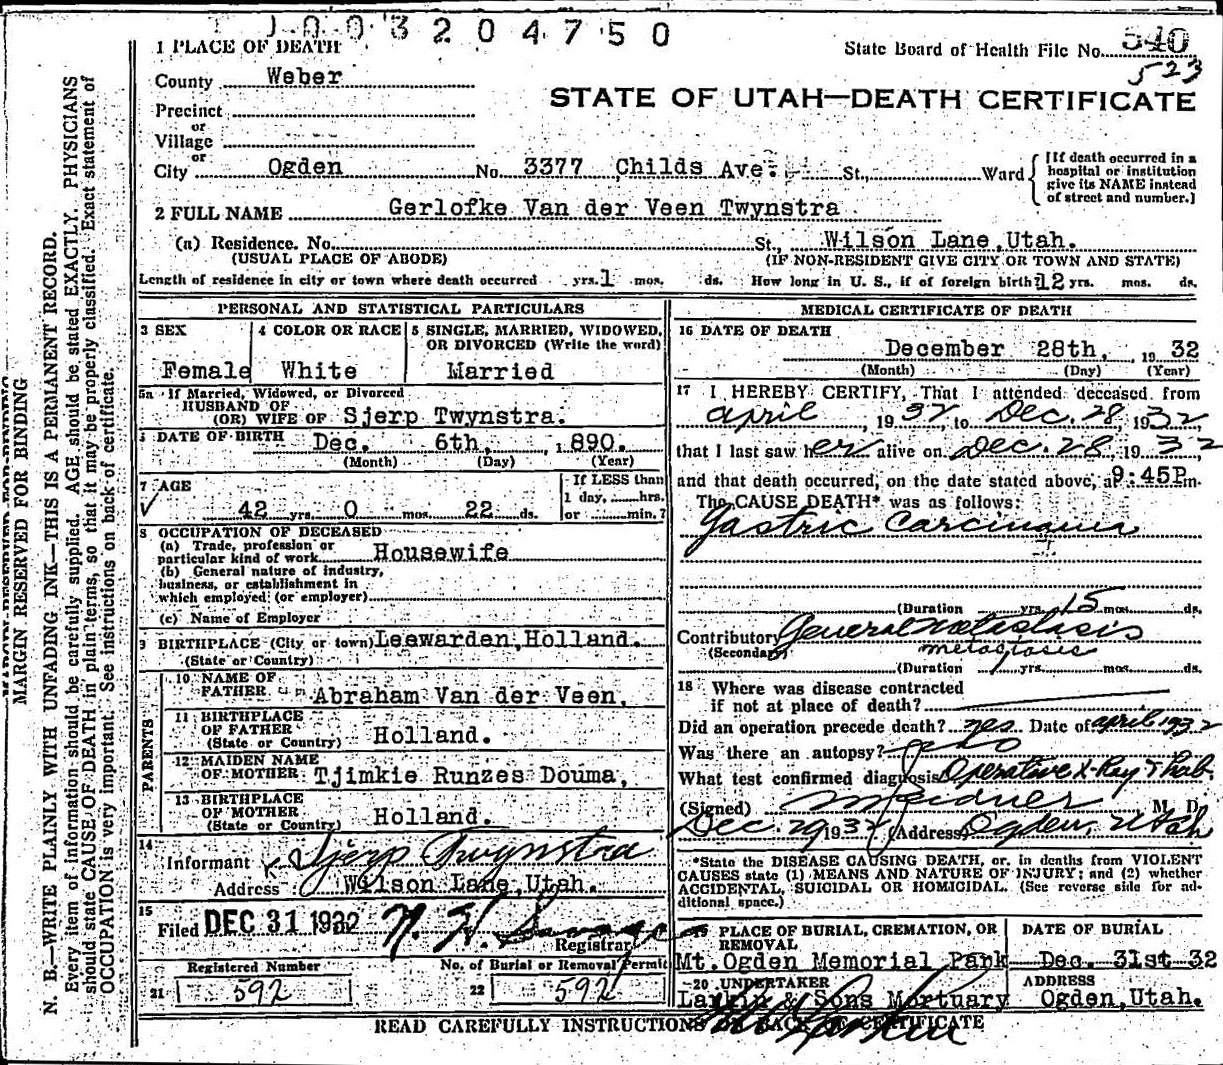 1003204750
1 PLACE OF DEATH
State Board of Health File No. 540
523
County Weber
STATE OF UTAH—DEATH CERTIFICATE
Precinct
or
Village
or
City Ogden No. 3377 Childs Ave. St., Ward
[If death occurred in a
hospital or institution
give its NAME instead
of street and number.]
2 FULL NAME Gerlofke Van der Veen Twynstra
(a) Residence. No. St., Wilson Lane, Utah.
(USUAL PLACE OF ABODE) (IF NON-RESIDENT GIVE CITY OR TOWN AND STATE)
Length of residence in city or town where death occurred yrs. 1 mos. ds. How long in U. S., if of foreign birth? 12 yrs. mos. ds.
PERSONAL AND STATISTICAL PARTICULARS
3 SEX
Female
4 COLOR OR RACE
White
5 SINGLE, MARRIED, WIDOWED,
OR DIVORCED (Write the word)
Married
5a If Married, Widowed, or Divorced
HUSBAND OF
(OR) WIFE OF Sjerp Twynstra.
6 DATE OF BIRTH Dec. 6th, 1890.
(Month) (Day) (Year)
7 AGE
42 yrs. 0 mos. 22 ds.
If LESS than
1 day, hrs.
or min.?
8 OCCUPATION OF DECEASED
(a) Trade, profession or
particular kind of work Housewife
(b) General nature of industry,
business, or establishment in
which employed (or employer)
(c) Name of Employer
9 BIRTHPLACE (City or town) Leewarden, Holland.
(State or Country)
PARENTS
10 NAME OF
FATHER Abraham Van der Veen,
11 BIRTHPLACE
OF FATHER
(State or Country) Holland.
12 MAIDEN NAME
OF MOTHER Tjimkie Runzes Douma,
13 BIRTHPLACE
OF MOTHER
(State or Country) Holland.
14
Informant Sjerp Twynstra
Address Wilson Lane, Utah.
15
Filed DEC 31 1932
Registrar
Registered Number
21 592
No. of Burial or Removal Permit
22 592
MEDICAL CERTIFICATE OF DEATH
16 DATE OF DEATH
December 28th, 1932
(Month) (Day) (Year)
17 I HEREBY CERTIFY, That I attended deceased from
april, 1932, to Dec. 28, 1932,
that I last saw her alive on Dec. 28, 1932
and that death occurred, on the date stated above, at 9:45P m.
The CAUSE DEATH* was as follows:
Gastric Carcinoma
(Duration yrs. 15 mos. ds.
Contributory General Metastasis
(Secondary) metastasis
(Duration yrs. mos. ds.
18 Where was disease contracted
if not at place of death?
Did an operation precede death? yes Date of april 1932
Was there an autopsy? no
What test confirmed diagnosis Operative X-Ray & Lab.
(Signed) M. D.
Dec. 29 1932 (Address) Ogden, Utah
*State the DISEASE CAUSING DEATH, or, in deaths from VIOLENT
CAUSES state (1) MEANS AND NATURE OF INJURY; and (2) whether
ACCIDENTAL, SUICIDAL OR HOMICIDAL. (See reverse side for ad-
ditional space.)
19 PLACE OF BURIAL, CREMATION, OR
REMOVAL
Mt. Ogden Memorial Park
DATE OF BURIAL
Dec. 31st 32
20 UNDERTAKER
Larkin & Sons Mortuary
ADDRESS
Ogden, Utah.
READ CAREFULLY INSTRUCTIONS ON BACK OF CERTIFICATE
MARGIN RESERVED FOR BINDING
N. B.—WRITE PLAINLY WITH UNFADING INK—THIS IS A PERMANENT RECORD.
Every item of information should be carefully supplied. AGE should be stated EXACTLY. PHYSICIANS
should state CAUSE OF DEATH in plain terms, so that it may be properly classified. Exact statement of
OCCUPATION is very important. See instructions on back of certificate.